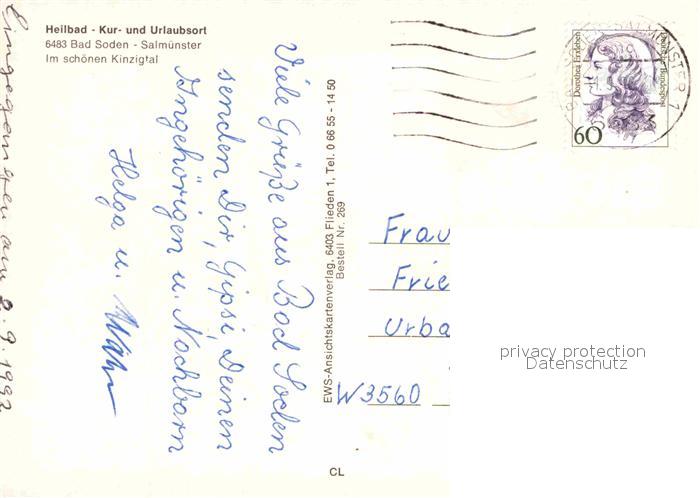 Heilbad - Kur- und Urlaubsort
6483 Bad Soden - Salmünster
Im schönen Kinzigtal
Viele Grüße aus Bad Soden
senden Dir, Gipsi, Deinen
Angehörigen u. Nachbarn
Helga u.
Eingegangen am 2.9.1992
EWS-Ansichtskartenverlag, 6403 Flieden 1, Tel. 0 66 55 - 14 50
Bestell Nr. 269
Dorothea Erxleben
Deutsche Bundespost
60
Frau
Frie
Urba
W3560
privacy protection
Datenschutz
CL